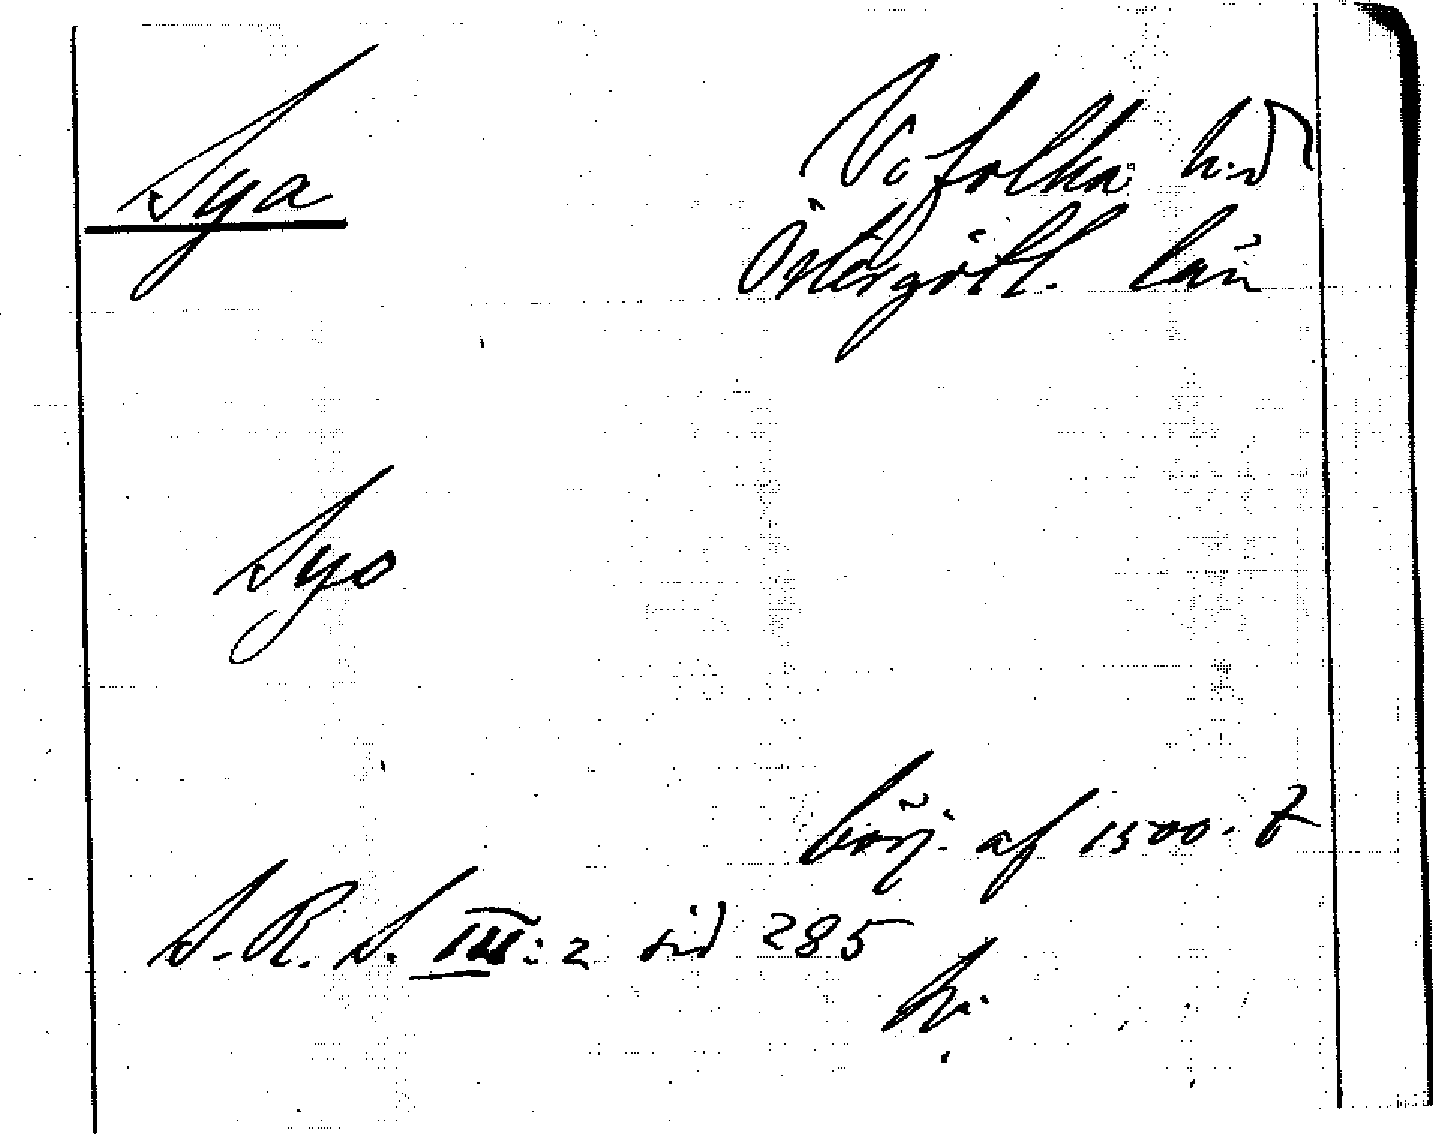 Sya
Vifolka h:d
Östergötl. län
Syo
börj. af 1500-t
S. R. S. III: 2 sid 285